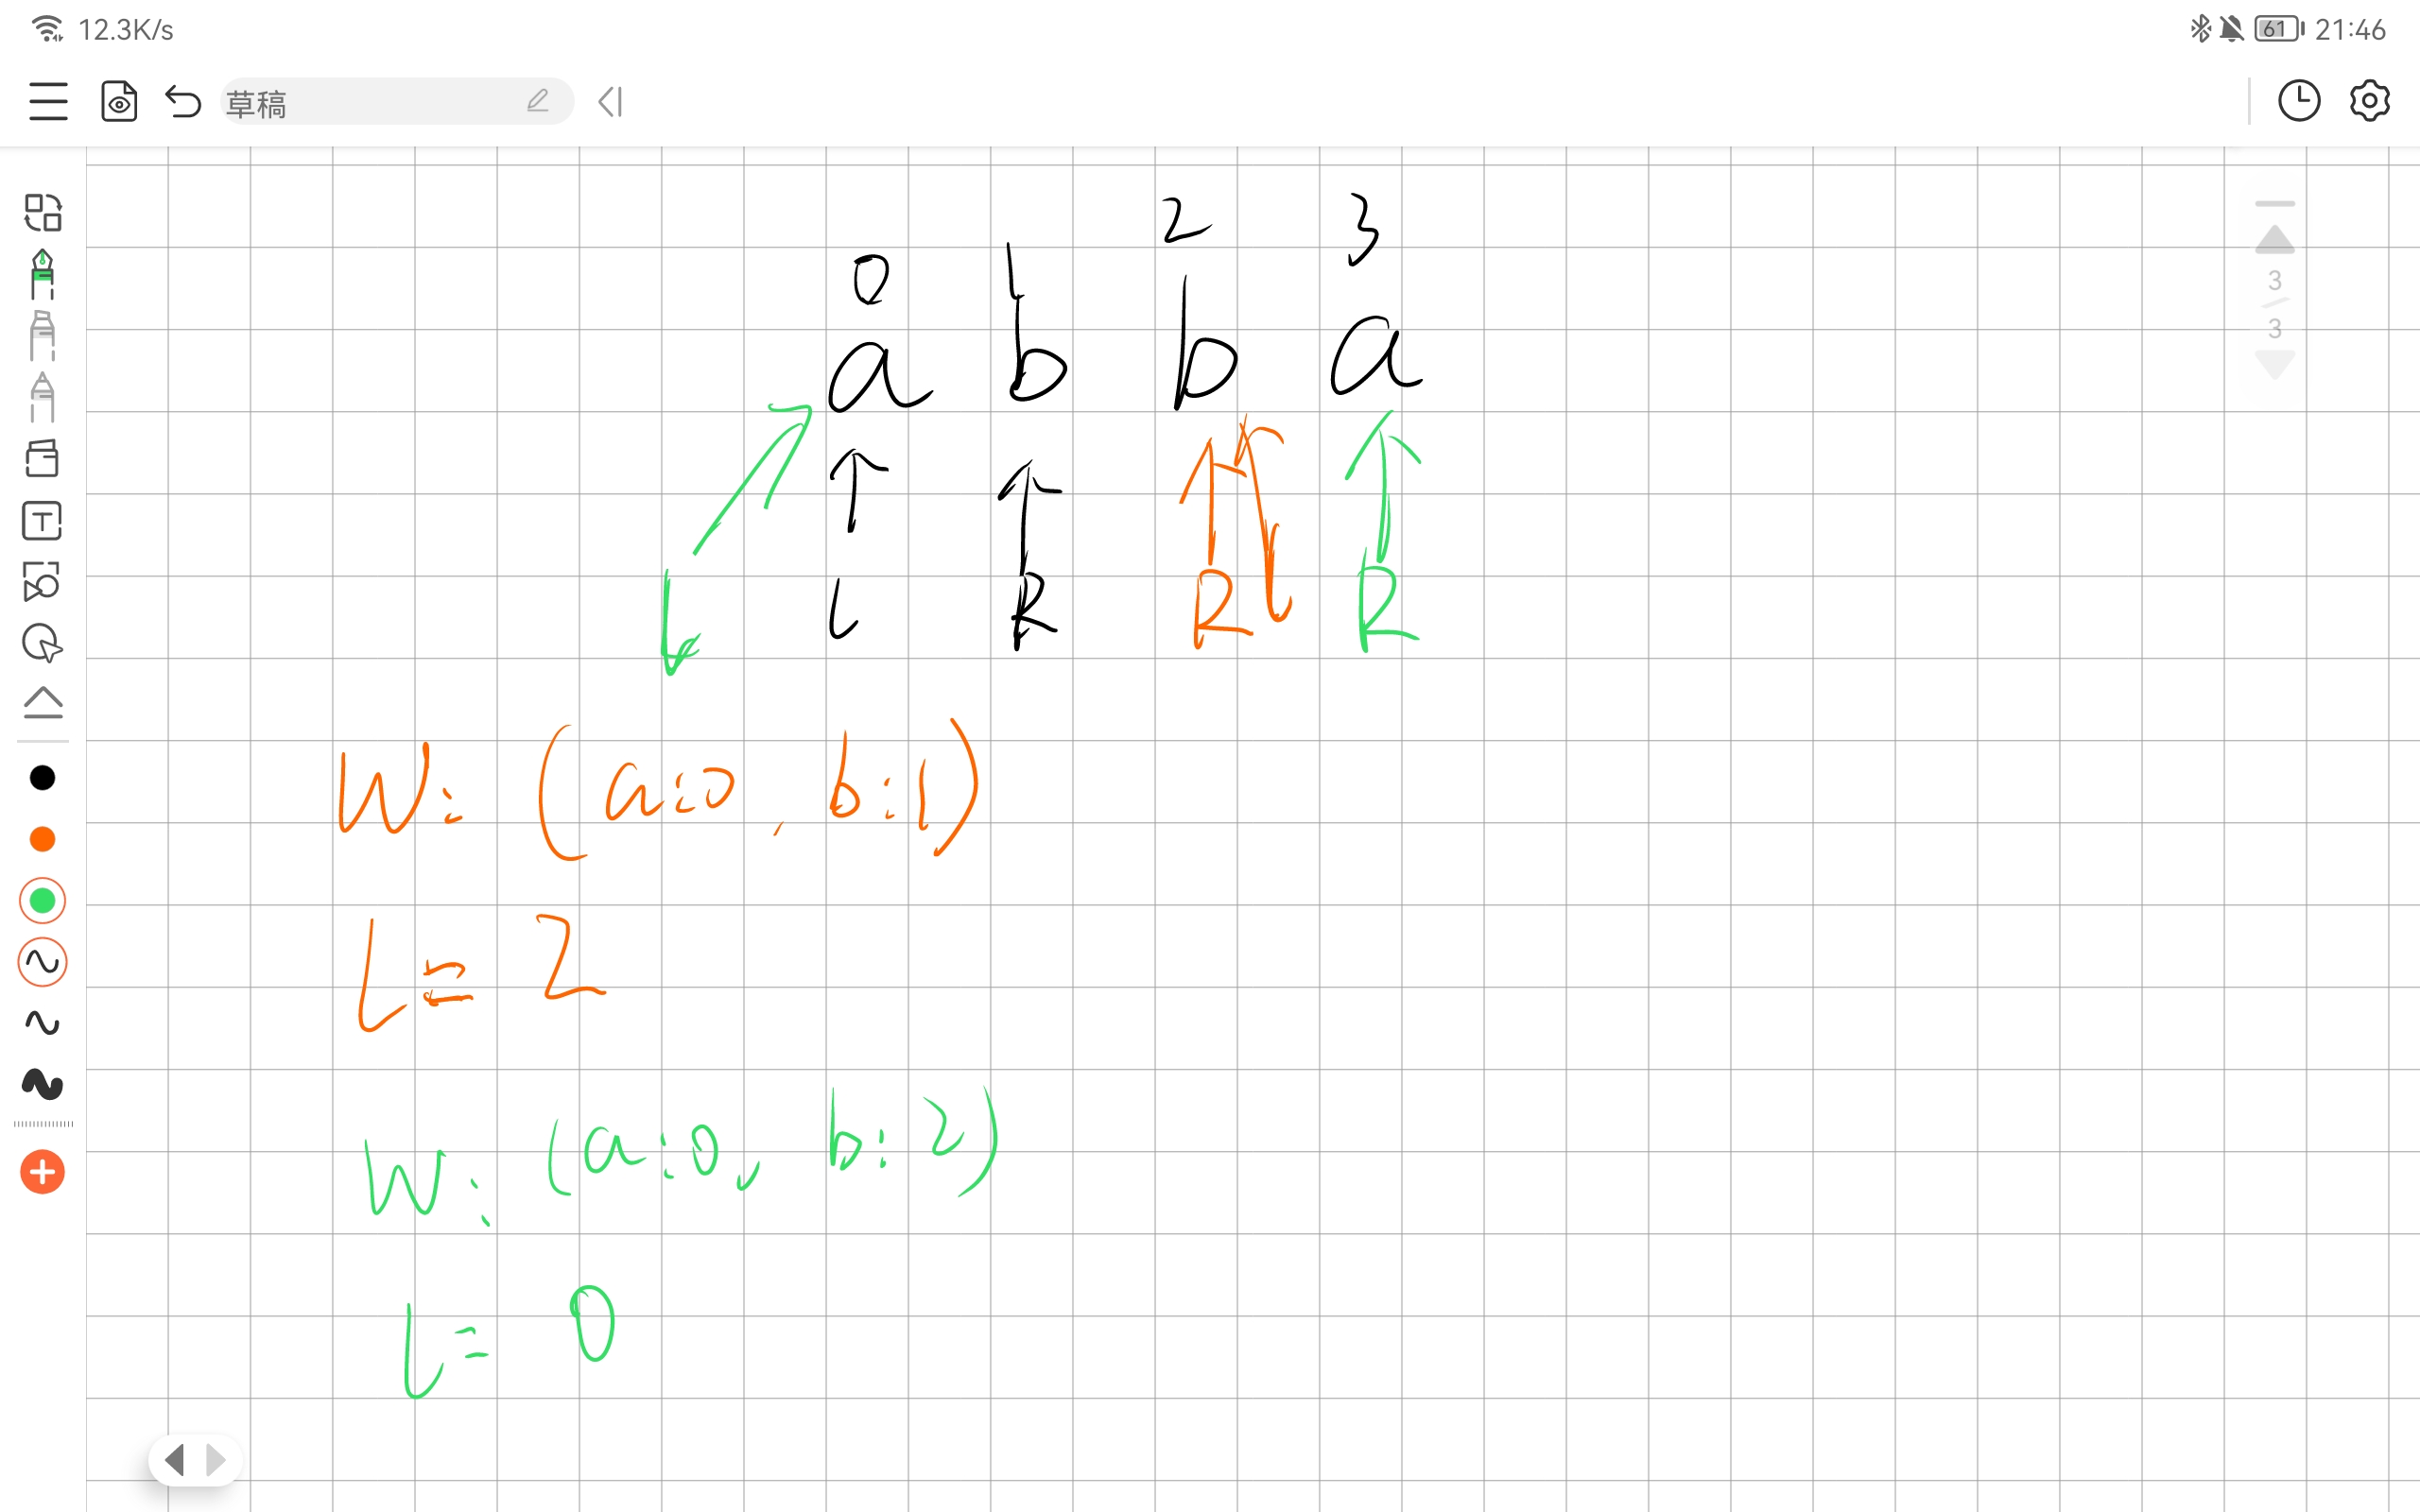 12.3K/s 61 21:46
草稿
2 3
0 1
a b b a
3
3
L L R R L R
W: (a:0, b:1)
L= 2
W: (a:0, b:2)
L= 0